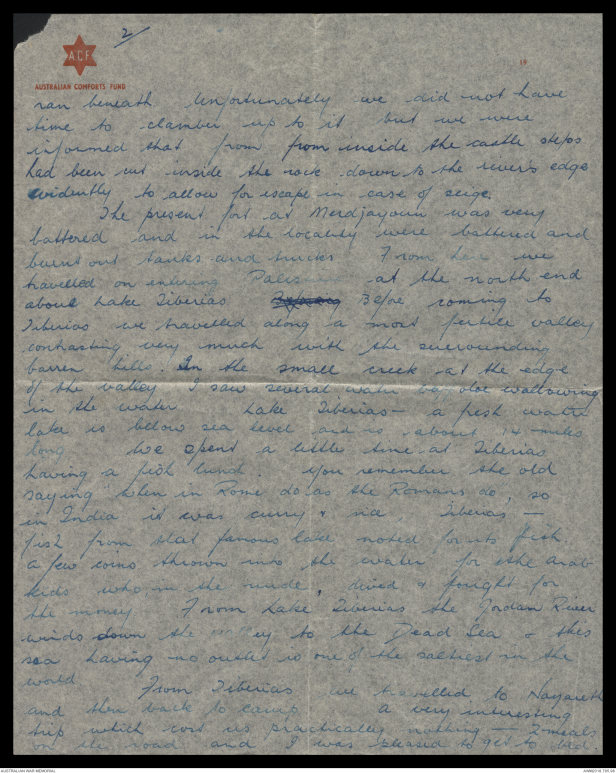 2
A.C.F
AUSTRALIAN COMFORTS FUND
19
ran beneath Unfortunately we did not have
time to clamber up to it but we were
informed that from from inside the castle steps
had been cut inside the rock down to the river's edge
evidently to allow for escape in case of seige.
The present fort at Merdjayoun was very
battered and in the locality were battered and
burnt out tanks and trucks From here we
travelled on entering Palestine at the north end
above Lake Tiberias Before coming to
Tiberias we travelled along a most fertile valley
contrasting very much with the surrounding
barren hills. In the small creek at the edge
of the valley I saw several water buffaloe wallowing
in the water. Lake Tiberias - a fresh water
lake is below sea level and is about 14 miles
long We spent a little time at Tiberias
having a fish lunch. You remember the old
saying "When in Rome do as the Romans do, so
in India it was curry & rice Tiberias -
fish from that famous lake noted for its fish
a few coins thrown into the water for the Arab
kids who, in the nude, dived & fought for
the money From Lake Tiberias the Jordan River
winds down the valley to the Dead Sea & this
sea having no outlet is one of the saltiest in the
world
From Tiberias we travelled to Nazareth
and then back to camp a very interesting
trip which cost us practically nothing - 2 meals
on the road and I was pleased to get to bed
AUSTRALIAN WAR MEMORIAL